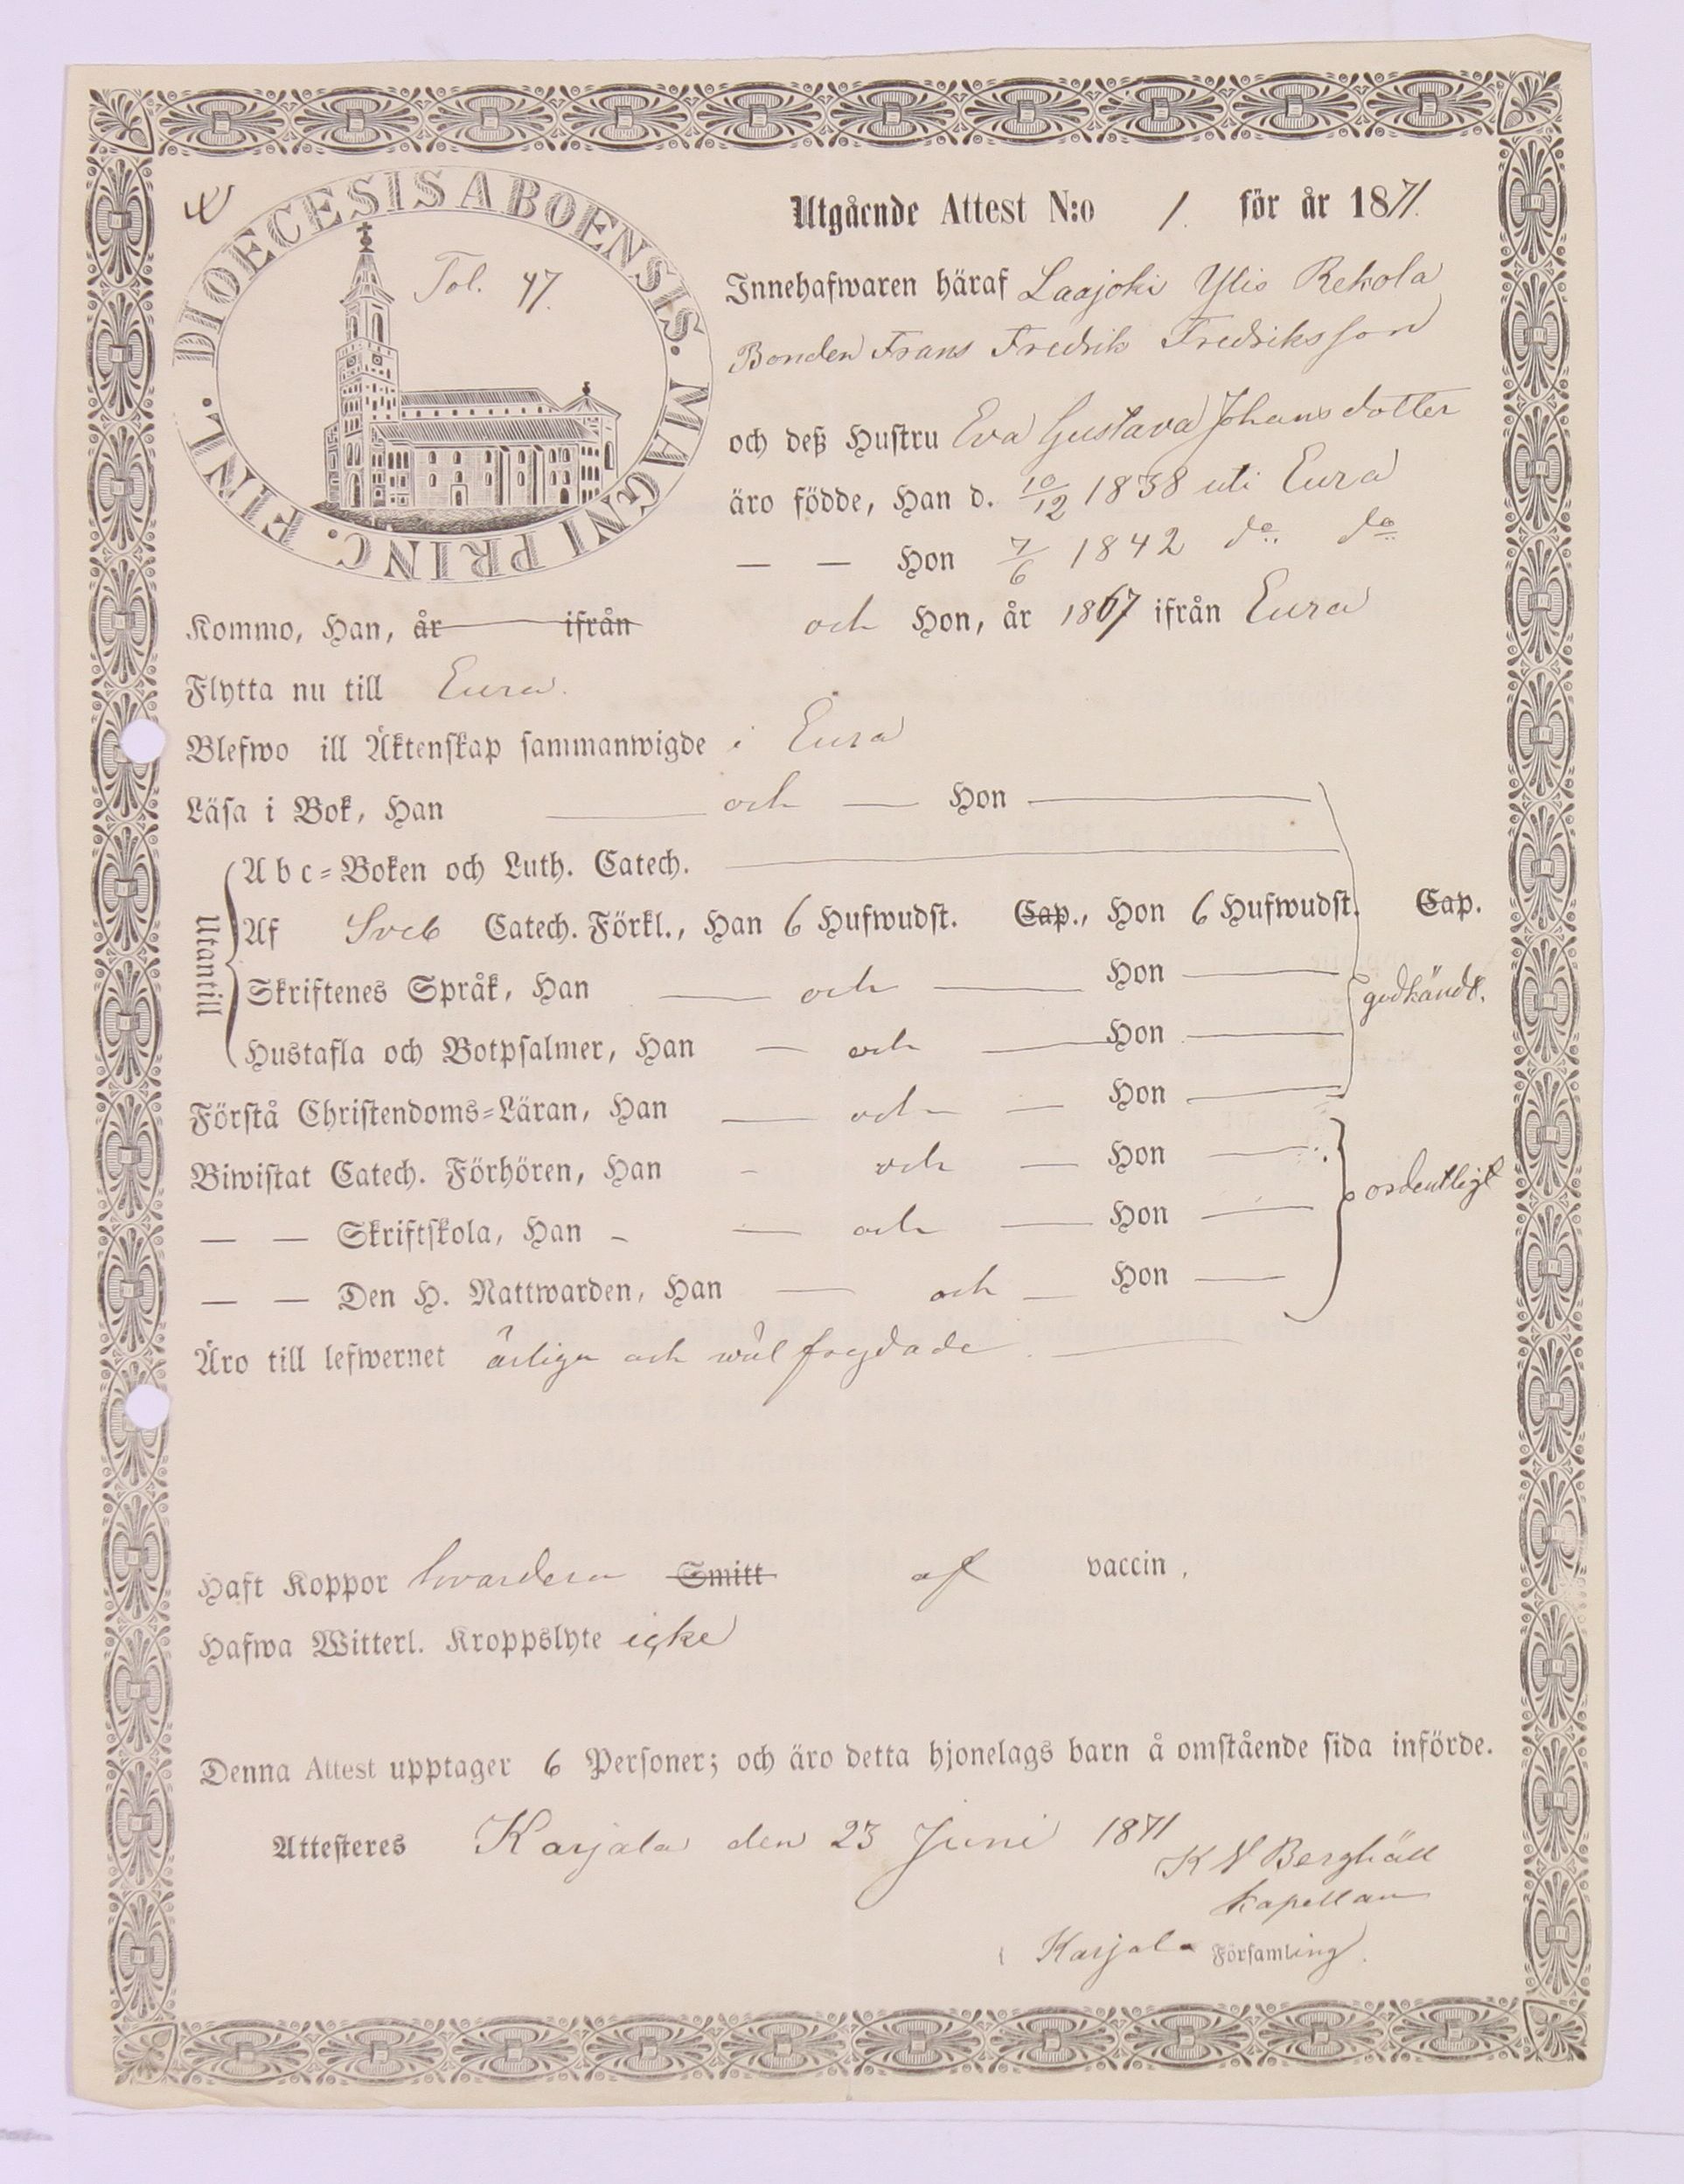 DIOECESIS ABOENSIS. MAGNI PRINC. FINL.
Tol. 47.
Utgående Attest N:o 1. för år 1871.
Innehafwaren häraf Laajoki Ylis Rekola
Bonden Frans Fredrik Fredriksson
och deß Hustru Eva Gustava Johansdotter
äro födde, Han d. 10/12 1838 uti Eura
— — Hon 7/6 1842 do do
Kommo, Han, år ifrån och Hon, år 1867 ifrån Eura
Flytta nu till Eura.
Blefwo ill Äktenskap sammanwigde i Eura
Läsa i Bok, Han — och — Hon —
Utantill
A b c=Boken och Luth. Catech. —
Af Sveb Catech. Förkl., Han 6 Hufwudst. Cap., Hon 6 Hufwudst. Cap.
Skriftenes Språk, Han — och — Hon — godkändt.
Hustafla och Botpsalmer, Han — och — Hon —
Förstå Christendoms=Läran, Han — och — Hon —
Biwistat Catech. Förhören, Han - och — Hon —
— — Skriftskola, Han - — och — Hon — ordentligt
— — Den H. Nattwarden, Han — och — Hon —
Äro till lefwernet ärliga och wäl frejdade. —
Haft Koppor hvardera Smitt af vaccin.
Hafwa Witterl. Kroppslyte icke
Denna Attest upptager 6 Personer; och äro detta hjonelags barn å omstående sida införde.
Attesteres Karjala den 23 Juni 1871
K N Berghäll
kapellan
i Karjala Församling.